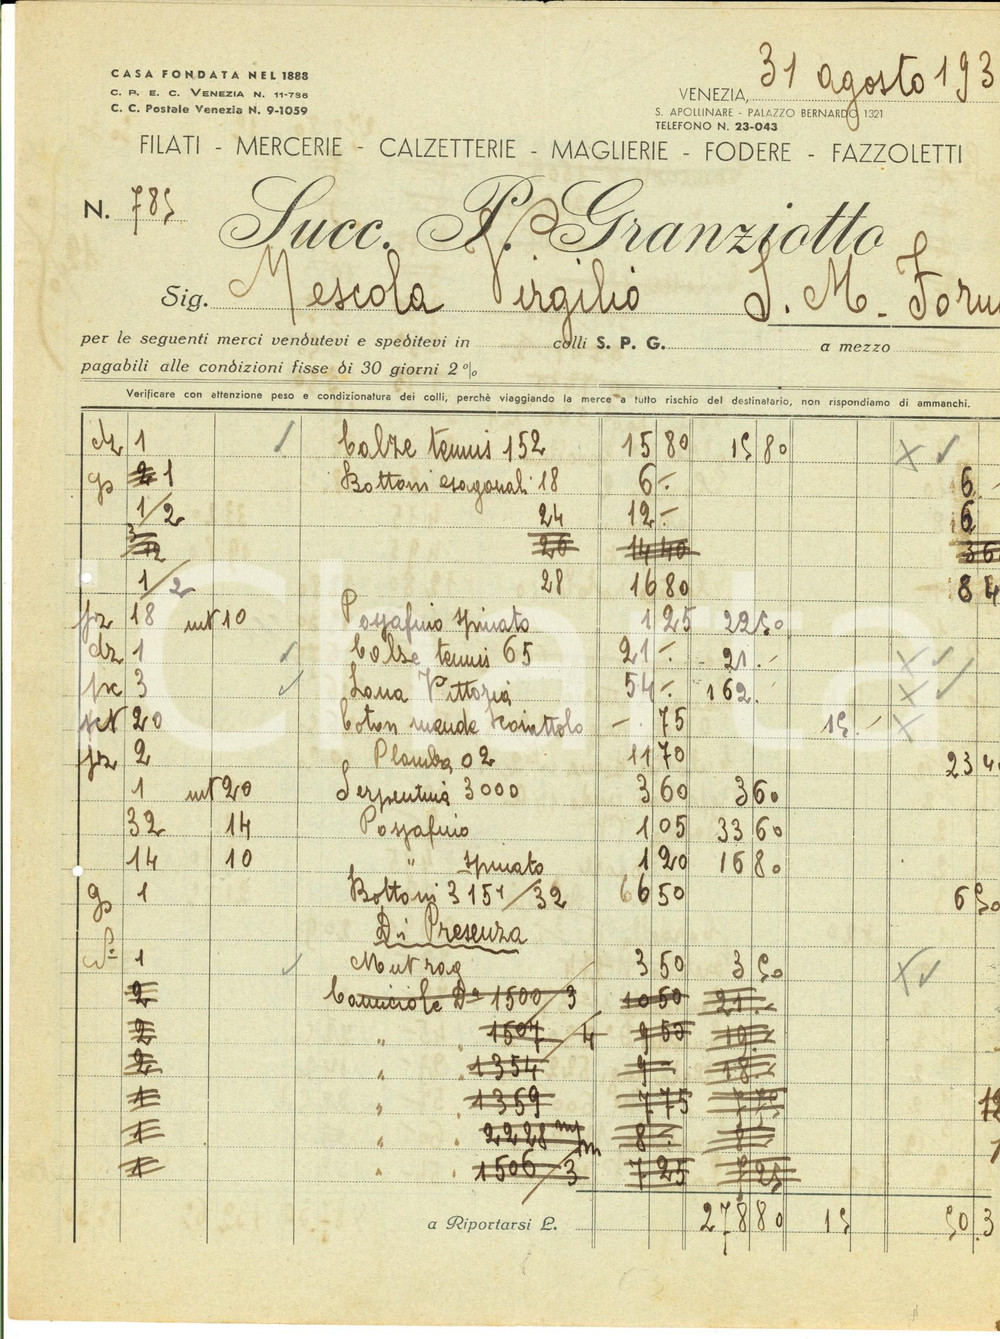 31 agosto 193
CASA FONDATA NEL 1888
C. P. E. C. VENEZIA N. 11-796
C. C. Postale Venezia N. 9-1059
VENEZIA,
S. APOLLINARE - PALAZZO BERNARDO 1321
TELEFONO N. 23-043
FILATI - MERCERIE - CALZETTERIE - MAGLIERIE - FODERE - FAZZOLETTI
N. 785
Succ. P. Granziotto
Sig. Mescola Virgilio S. M.
per le seguenti merci vendutevi e speditevi in colli S. P. G. a mezzo
pagabili alle condizioni fisse di 30 giorni 2%
Verificare con attenzione peso e condizionatura dei colli, perchè viaggiando la merce a tutto rischio del destinatario, non rispondiamo di ammanchi.
dz 1 Calze tennis 152 15 80 15 80
gs 1 Bottoni esagonali 18 6 - 6 -
1/2 24 12 - 6
20 14 40 36
1/2 28 16 80 8 4
pz 18 mt 10 Passafino spinato 1 25 22 50
dz 1 Calze tennis 65 21 - 21 -
3 Lana Vittoria 54 - 162
20 Coton 75 15 -
pz 2 02 11 70 23 4
1 mt 20 Serpentina 3000 3 60 3 60
32 14 Passafino 1 05 33 60
14 10 " spinato 1 20 16 80
gs 1 Bottoni 3151/32 6 50 6 50
Di Presenza
1 3 50 3 50
2 Camiciole Da 1500/3 10 50 21 -
2 " 1507/4 9 50 19 -
2 " 1354 9 - 18 -
1 " 1369 7 75 7 75
1 " 2228 8 - 8 -
1 " 1506/3 7 25 7 25
a Riportarsi L. 278 80 15 50 3
Charta